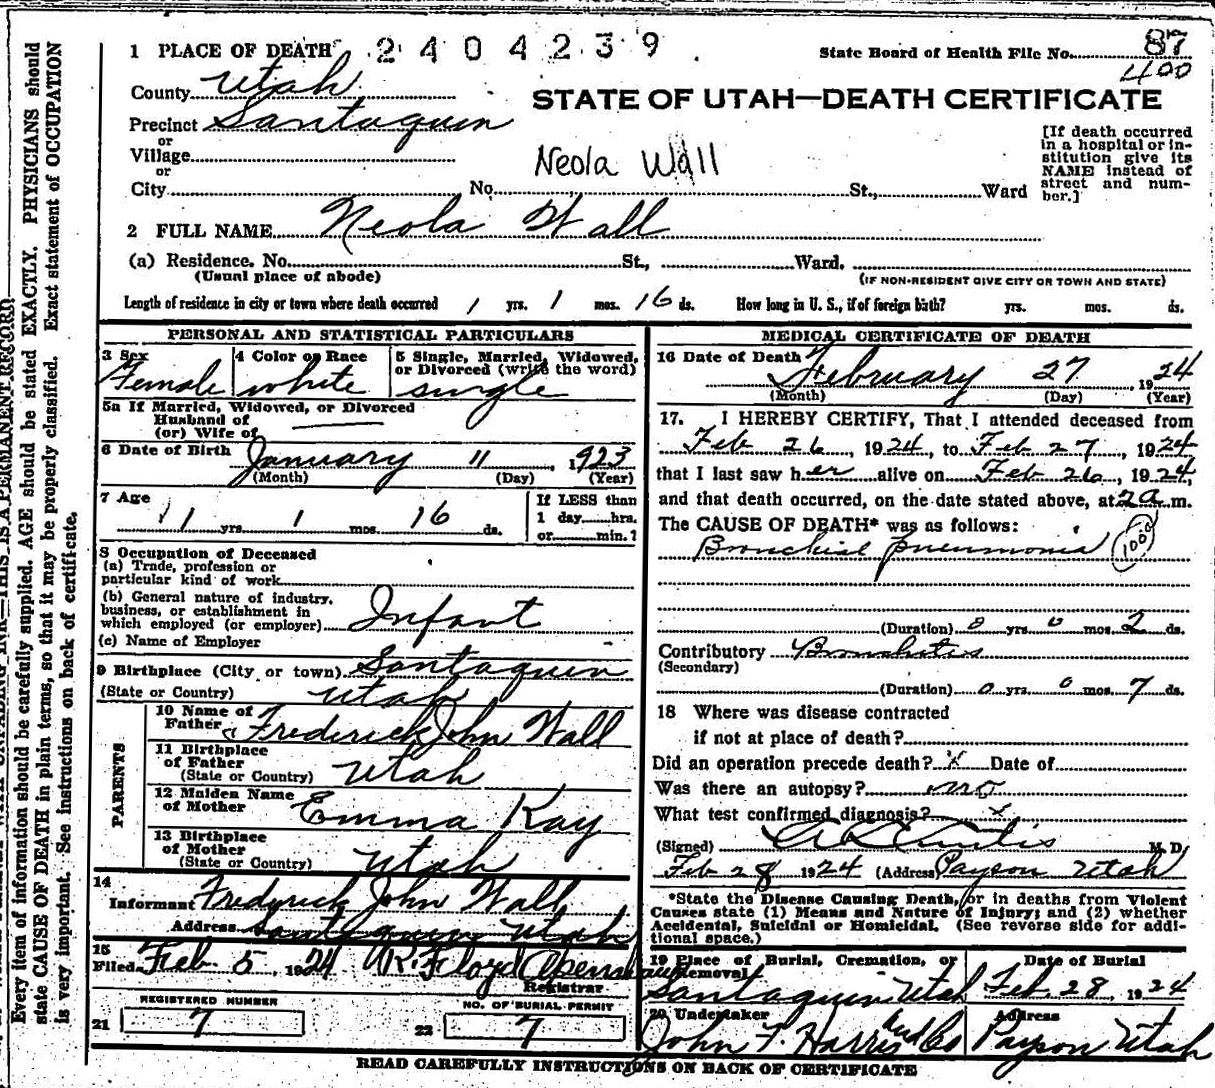 1 PLACE OF DEATH 2404239
State Board of Health File No. 87
400
County Utah
STATE OF UTAH—DEATH CERTIFICATE
Precinct Santaquin
or
Village
or
City No. St., Ward
Neola Wall
[If death occurred
in a hospital or in-
stitution give its
NAME instead of
street and num-
ber.]
2 FULL NAME Neola Wall
(a) Residence. No. St., Ward.
(Usual place of abode) (IF NON-RESIDENT GIVE CITY OR TOWN AND STATE)
Length of residence in city or town where death occurred 1 yrs. 1 mos. 16 ds. How long in U. S., if of foreign birth? yrs. mos. ds.
PERSONAL AND STATISTICAL PARTICULARS
3 Sex 4 Color or Race 5 Single, Married, Widowed,
or Divorced (write the word)
Female white single
5a If Married, Widowed, or Divorced
Husband of
(or) Wife of
6 Date of Birth January 11, 1923
(Month) (Day) (Year)
7 Age 1 yrs. 1 mos. 16 ds.
If LESS than
1 day hrs.
or min.?
8 Occupation of Deceased
(a) Trade, profession or
particular kind of work
(b) General nature of industry,
business, or establishment in
which employed (or employer) Infant
(c) Name of Employer
9 Birthplace (City or town) Santaquin
(State or Country) Utah
PARENTS
10 Name of
Father Frederick John Wall
11 Birthplace
of Father
(State or Country) Utah
12 Maiden Name
of Mother Emma Kay
13 Birthplace
of Mother
(State or Country) Utah
14
Informant Frederick John Wall
Address Santaquin Utah
15
Filed Feb. 5, 1924 R. Floyd
Registrar
REGISTERED NUMBER NO. OF BURIAL PERMIT
21 7 22 7
MEDICAL CERTIFICATE OF DEATH
16 Date of Death February 27, 1924
(Month) (Day) (Year)
17. I HEREBY CERTIFY, That I attended deceased from
Feb 26, 1924, to Feb 27, 1924
that I last saw her alive on Feb 26, 1924,
and that death occurred, on the date stated above, at 2a m.
The CAUSE OF DEATH* was as follows:
Bronchial pneumonia 100
(Duration) 0 yrs. 0 mos. 2 ds.
Contributory Bronchitis
(Secondary)
(Duration) 0 yrs. 0 mos. 7 ds.
18 Where was disease contracted
if not at place of death?
Did an operation precede death? x Date of
Was there an autopsy? no
What test confirmed diagnosis? x
(Signed) A L Curtis M. D.
Feb 28 1924 (Address Payson Utah
*State the Disease Causing Death, or in deaths from Violent
Causes state (1) Means and Nature of Injury; and (2) whether
Accidental, Suicidal or Homicidal. (See reverse side for addi-
tional space.)
19 Place of Burial, Cremation, or Date of Burial
Removal
Santaquin Utah Feb. 28, 1924
20 Undertaker Address
John F. Harris and Co Payson Utah
READ CAREFULLY INSTRUCTIONS ON BACK OF CERTIFICATE
Every item of information should be carefully supplied. AGE should be stated EXACTLY. PHYSICIANS should
state CAUSE OF DEATH in plain terms, so that it may be properly classified. Exact statement of OCCUPATION
is very important. See instructions on back of certificate.
THIS IS A PERMANENT RECORD